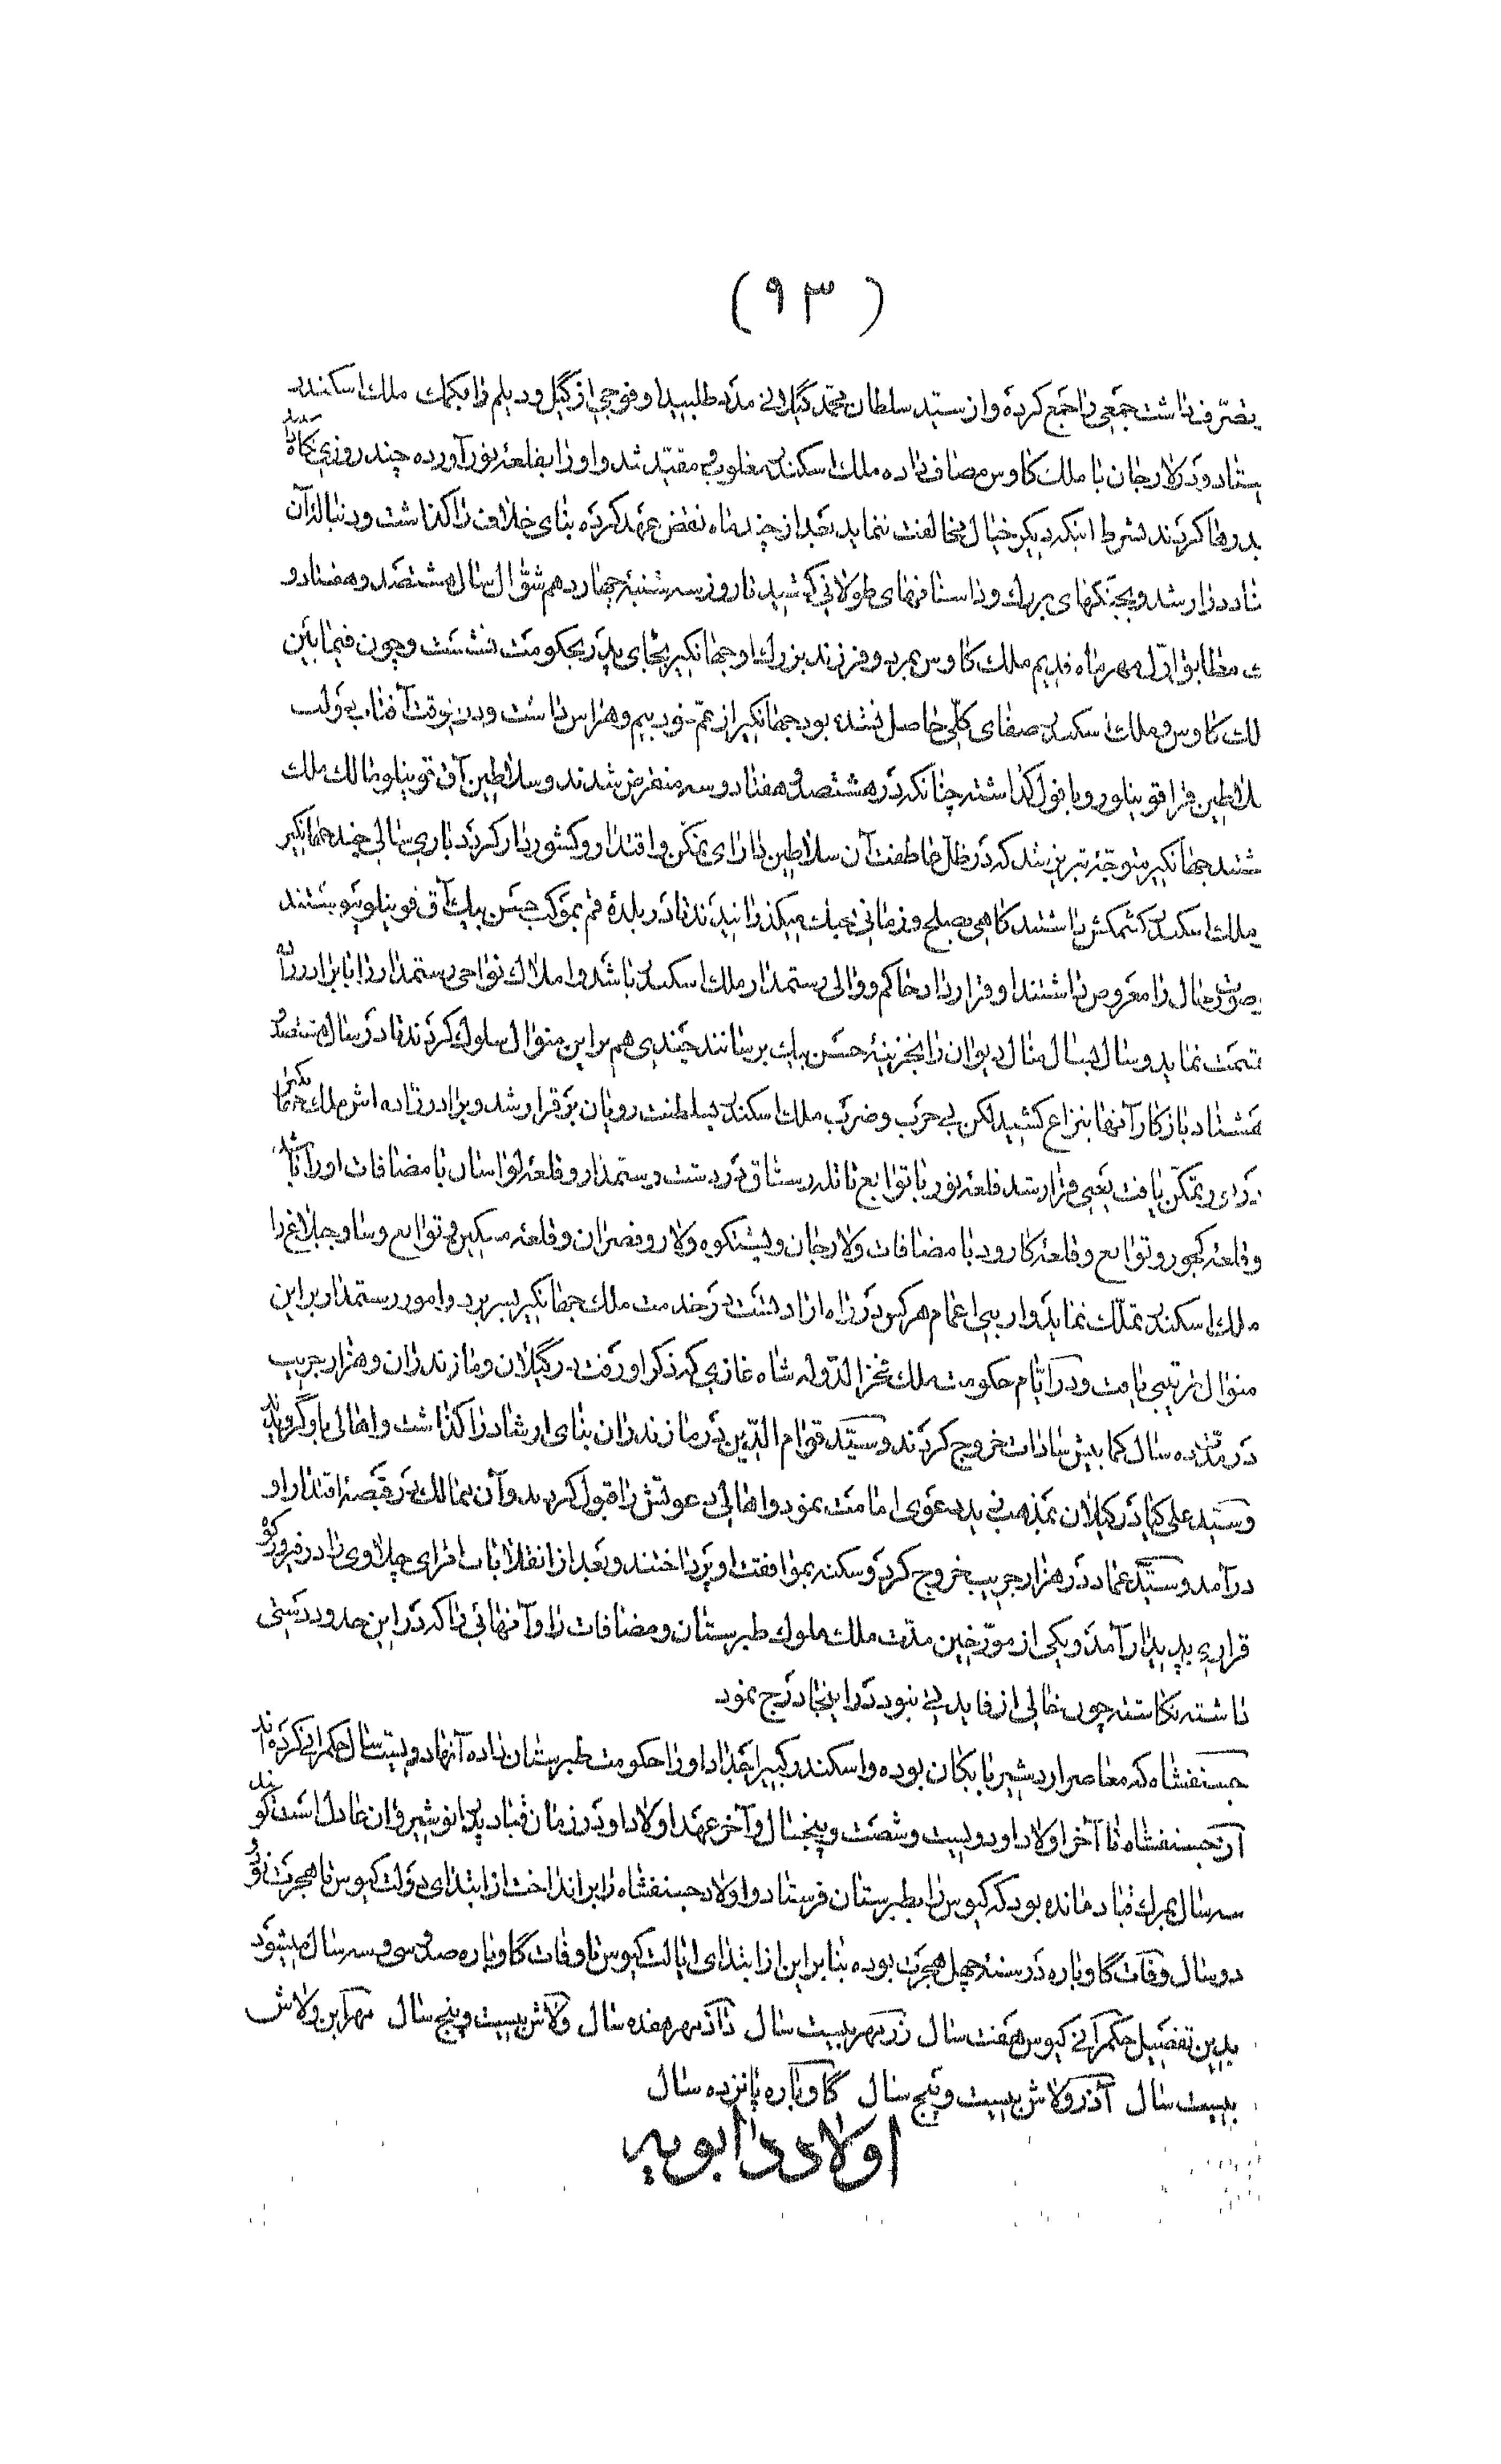 (۹۳)
بتصرّف داشت جمعی را جمع کرده و از سیّد سلطان محمّد گیلانی مدد طلبید او فوجی از گیل و دیلم را بکمك ملك اسکندر
ستاد و در لارجان با ملك کاوس مصاف داده ملك اسکندر مغلوب و مقیّد شد و او را بقلعۀ نور آورده چند روزی نگاه
بد و رها کردند بشرط اینکه دیگر خیال مخالفت ننماید بعد از چند ماه نقض عهد کرده بنای خلاف را گذاشت و دنبالۀ آن
دراز شد و بجنگهای بزرك و داستانهای طولانی کشید تا روز سه شنبۀ چهاردهم شوّال سال هشتصد و هفتاد و
مطابق اوّل مهر ماه قدیم ملك کاوس بمرد و فرزند بزرك او جهانگیر بجای پدر بحکومت نشست و چون فیمابین
لك کاوس و ملك اسکندر صفای کلّی حاصل نشده بود جهانگیر از عمّ خود بیم و هراس داشت و در نوقت آفتاب دولت
لاطین قراقوینلو رو بافول گذاشته چنانکه در هشتصد و هفتاد و سه منقرض شدند و سلاطین آق قوینلو مالك ملك
شتند جهانگیر متوجّه تبریز شد که در ظلّ عاطفت آن سلاطین دارای تمکّن و اقتدار و کشوردار گردد باری سالی چند جهانگیر
ملك اسکندر کشمکش داشتند گاهی بصلح و زمانی بجنك میگذرانیدند تا در بلدۀ قم بموکب حسن بیك آق قوینلو پیوستند
صورت حال را معروض داشتند او قرار داد حاکم و والی رستمدار ملك اسکندر باشد و املاك نواحی رستمدار را با برادرزاده
قسمت نماید و سال بسال منال دیوان را بخزینۀ حسن بیك برسانند چندی هم بر این منوال سلوك کردند تا در سال هشتصد
هشتاد باز کار آنها بنزاع کشید لکن بی حرب و ضرب ملك اسکندر بسلطنت رویان برقرار شد و برادرزاده اش ملك جهانگیر
در وی تمکّن یافت یعنی قرار شد قلعۀ نور با توابع ناتله رستاق در دشت رستمدار و قلعۀ لواسان با مضافات او را باشد
و قلعۀ کجور و توابع و قلعۀ کارود با مضافات و لارجان و پشتکوه و لار و قصران و قلعۀ مسکین و توابع و ساوجبلاغ را
ملك اسکندر تملّك نماید و از بنی اعمام هر کس در راه ارادتست در خدمت ملك جهانگیر بسر برد و امور رستمدار بر این
منوال ترتیبی یافت و در ایّام حکومت ملك فخر الدّوله شاه غازی که ذکر او رفت در گیلان و مازندران و هزار جریب
در مدّت ده سال کمابیش سادات خروج کردند و سیّد قوام الدّین در مازندران بنای ارشاد را گذاشت و اهالی باو گرویدند
و سیّد علی کیا در گیلان بمذهب زیدی دعوی امامت نمود و اهالی دعوتش را قبول کردند و آن ممالك در قبضۀ اقتدار او
درآمد و سیّد عماد در هزار جریب خروج کرد و سکنه بموافقت او پرداختند و بعد از انقلابات افرای چلاوی را در فیروزکوه
قراری پدیدار آمد و یکی از مورّخین مدّت ملك ملوك طبرستان و مضافات را و آنهائی را که در این حدود دستی
داشته نگاشته چون خالی از فایدتی نبود در اینجا درج نمود
جسنفشاه که معاصر اردشیر بابکان بوده و اسکندر کبیر اجداد او را حکومت طبرستان داده آنها دویست سال حکمرانی کرده اند
از جسنفشاه تا آخر اولاد او دویست و شصت و پنجسال و آخر عهد اولاد او در زمان قباد پدر انوشیروان عادل است گویند
سه سال بمرك قباد مانده بود که کیوس را بطبرستان فرستاد و اولاد جسنفشاه را برانداخت از ابتدای دولت کیوس تا هجرت نود و
دو سال وفات گاوباره در سنۀ چهل هجرت بوده بنابر این از ابتدای ایالت کیوس تا وفات گاوباره صد و سی و سه سال میشود
بدین تفصیل حکمرانی کیوس هفت سال زرمهر بیست سال داذمهر هفده سال ولاش بیست و پنج سال مهر ابن ولاش
بیست سال آذرولاش بیست و پنج سال گاوباره پانزده سال
اولاد دابویه